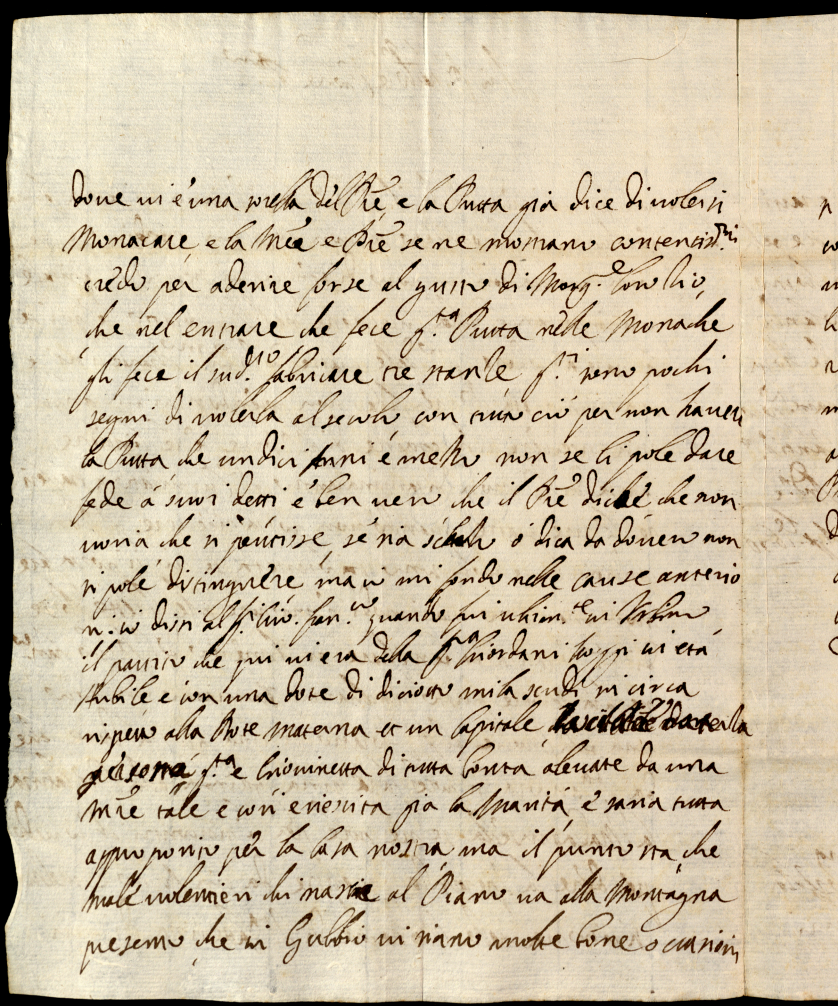 dove vi è una sorella del Pre, e la Putta già dice di volersi
Monacare, e la Mre e Pre se ne mostrano contentiss.mi
credo per aderire forse al gusto di Mons.re loro Zio,
che nel entrare che fece q.ta Putta nelle Monache
gli fece il sud.to fabricare tre stanze q.ti sono pochi
segni di volerla al secolo con tutto ciò per non havere
la Putta che undici anni e mezzo non se li pole dare
fede à suoi detti è ben vero che il Pre dice che non
voria che si pentisse, se sia o dica da dovero non
si pole distinguere ma io mi fondo nelle cause anterio
ri. io dissi al quando fui ultim.te in Urbino
il partito che qui vi era della Giordani hoggi in età
Nubile e con una dote di diciotto mila scudi in circa
rispetto alla Dote materna et un Capitale
persona q.ta e Giovinetta di tutta bontà alevate da una
Mre tale e così è riescita già la Maritá, e saria tutta
apropposito per la Casa nostra ma il punto stà che
mal volentieri chi nasce al Piano va alla Montagna
presento che in Gubbio vi siano molte bone occasioni